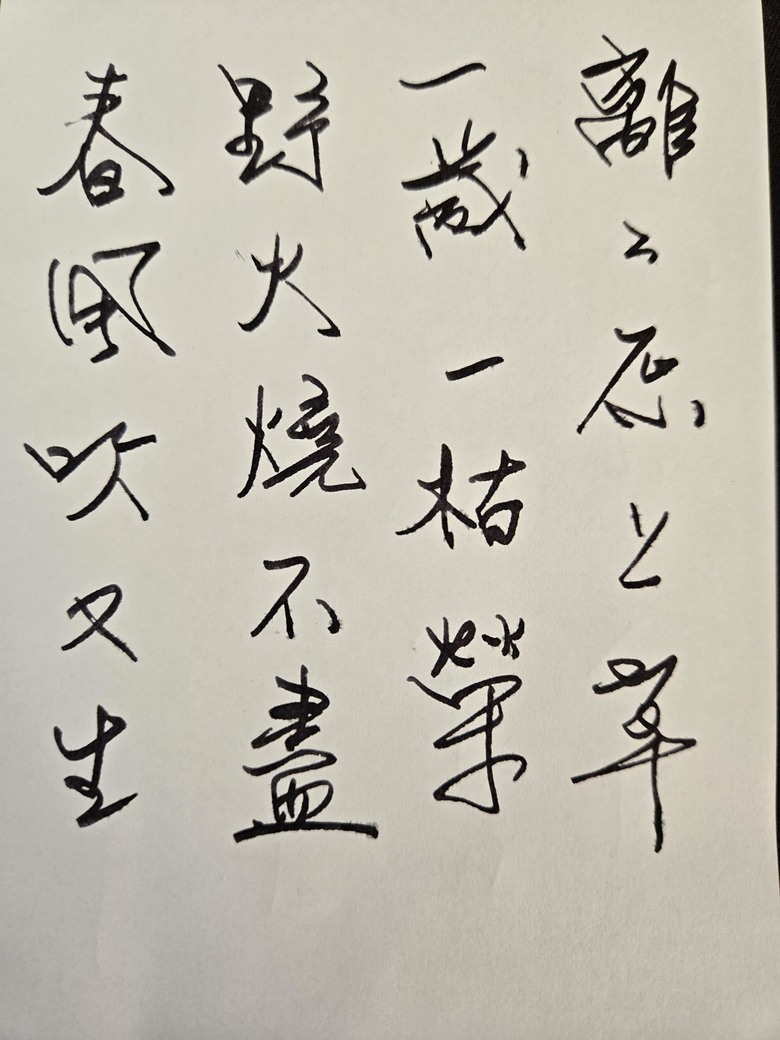 離々原上草
一歲一枯榮
野火燒不盡
春風吹又生